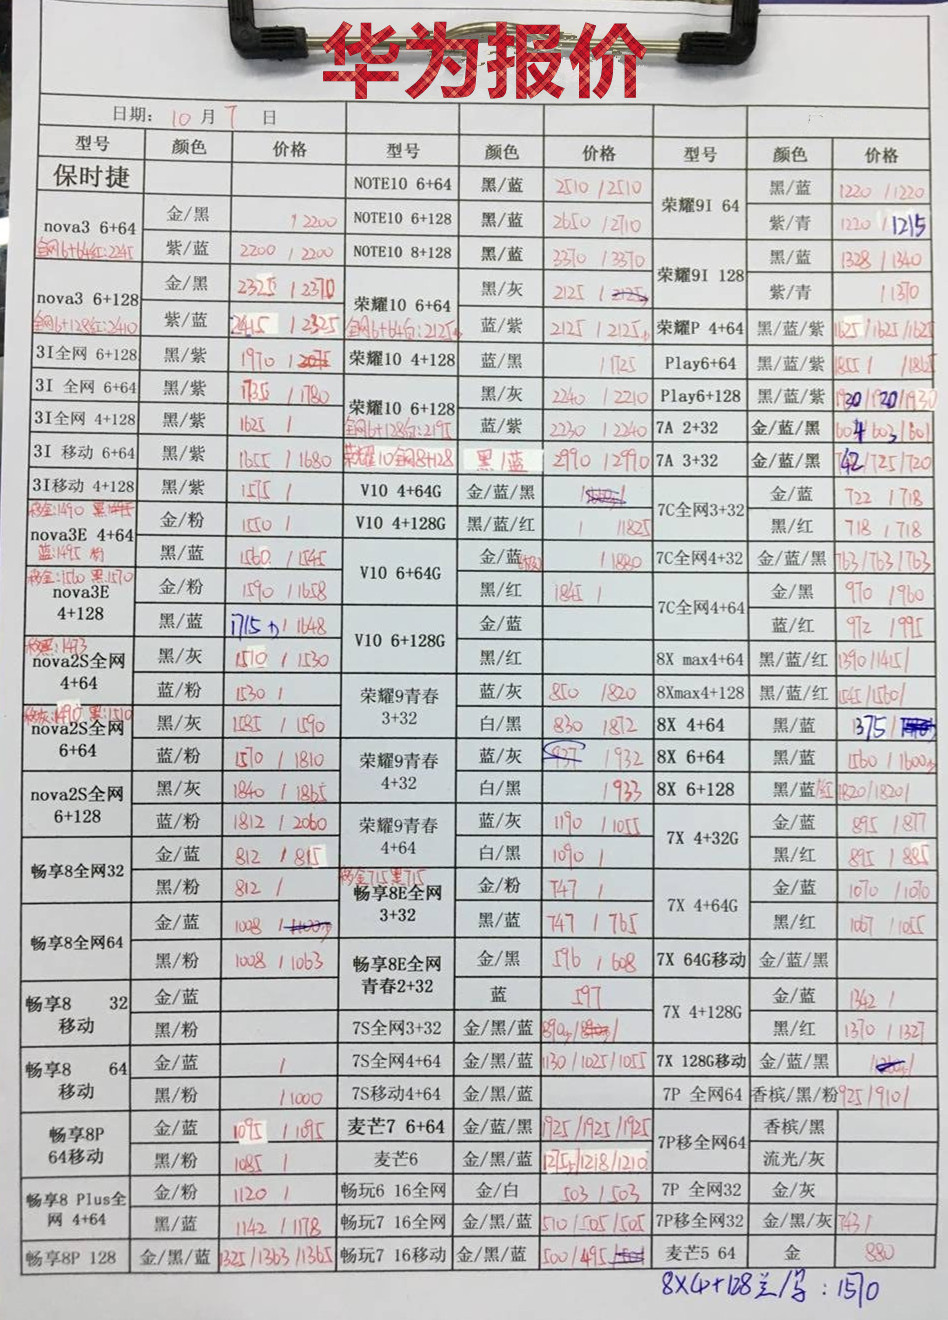 华为报价
日期: 10 月 7 日
型号 颜色 价格 型号 颜色 价格 型号 颜色 价格
保时捷
nova3 6+64
全网6+64红:2245
金/黑 / 2200
紫/蓝 2200 / 2200
nova3 6+128
全网6+128红:2410
金/黑 2325 / 2370
紫/蓝 2415 / 2325
3I全网 6+128 黑/紫 1970 /
3I 全网 6+64 黑/紫 1735 / 1780
3I全网 4+128 黑/紫 1625 /
3I 移动 6+64 黑/紫 1655 / 1680
3I移动 4+128 黑/紫 1575 /
nova3E 4+64
金/粉 1550 /
黑/蓝 1560 / 1545
nova3E
4+128
金/粉 1590 / 1658
黑/蓝 1715 / 1648
nova2S全网
4+64
黑/灰 1510 / 1530
蓝/粉 1530 /
nova2S全网
6+64
黑/灰 1585 / 1590
蓝/粉 1570 / 1810
nova2S全网
6+128
黑/灰 1840 / 1865
蓝/粉 1812 / 2060
畅享8全网32
金/蓝 812 / 815
黑/粉 812 /
畅享8全网64
金/蓝 1008 /
黑/粉 1008 / 1063
畅享8 32
移动
金/蓝
黑/粉
畅享8 64
移动
金/蓝 /
黑/粉 / 1000
畅享8P
64移动
金/蓝 1095 / 1095
黑/粉 1085 /
畅享8 Plus全
网 4+64
金/粉 1120 /
黑/蓝 1142 / 1178
畅享8P 128 金/黑/蓝 1325 / 1363 / 1365
NOTE10 6+64 黑/蓝 2510 / 2510
NOTE10 6+128 黑/蓝 2650 / 2710
NOTE10 8+128 黑/蓝 3370 / 3370
荣耀10 6+64
全网6+64白:2125
黑/灰 2125 /
蓝/紫 2125 / 2125
荣耀10 4+128 蓝/黑 / 1725
荣耀10 6+128
全网6+128白:2195
黑/灰 2240 / 2210
蓝/紫 2230 / 2240
荣耀10全网8+128 黑/蓝 2990 / 2990
V10 4+64G 金/蓝/黑 /
V10 4+128G 黑/蓝/红 / 1825
V10 6+64G
金/蓝 / 1880
黑/红 1845 /
V10 6+128G
金/蓝
黑/红
荣耀9青春
3+32
蓝/灰 850 / 820
白/黑 830 / 872
荣耀9青春
4+32
蓝/灰 937 / 932
白/黑 / 933
荣耀9青春
4+64
蓝/灰 1190 / 1055
白/黑 1090 /
畅享8E全网
3+32
金/粉 747 /
黑/蓝 747 / 765
畅享8E全网
青春2+32
金/黑 596 / 608
蓝 597
7S全网3+32 金/黑/蓝 890 /
7S全网4+64 金/黑/蓝 1130 / 1025 / 1055
7S移动4+64 金/黑/蓝
麦芒7 6+64 金/蓝/黑 1925 / 1925 / 1925
麦芒6 金/黑/蓝 1275 / 1218 / 1210
畅玩6 16全网 金/白 503 / 503
畅玩7 16全网 金/黑/蓝 510 / 505 / 505
畅玩7 16移动 金/黑/蓝 500 / 495 /
荣耀9I 64
黑/蓝 1220 / 1220
紫/青 1220 / 1215
荣耀9I 128
黑/蓝 1328 / 1340
紫/青 / 1370
荣耀P 4+64 黑/蓝/紫 1625 / 1625 / 1625
Play6+64 黑/蓝/紫 1855 / / 1865
Play6+128 黑/蓝/紫 1930 / 1920 / 1930
7A 2+32 金/蓝/黑 604 / 603 / 601
7A 3+32 金/蓝/黑 742 / 725 / 720
7C全网3+32
金/蓝 722 / 718
黑/红 718 / 718
7C全网4+32 金/蓝/黑 763 / 763 / 763
7C全网4+64
金/黑 970 / 960
蓝/红 972 / 995
8X max4+64 黑/蓝/红 1390 / 1415 /
8Xmax4+128 黑/蓝/红 1545 / 1560 /
8X 4+64 黑/蓝 1375 /
8X 6+64 黑/蓝 1560 / 1600
8X 6+128 黑/蓝/红 1820 / 1820 /
7X 4+32G
金/蓝 895 / 877
黑/红 895 / 885
7X 4+64G
金/蓝 1070 / 1070
黑/红 1067 / 1055
7X 64G移动 金/蓝/黑
7X 4+128G
金/蓝 1342 /
黑/红 1370 / 1327
7X 128G移动 金/蓝/黑 /
7P 全网64 香槟/黑/粉 925 / 910 /
7P移全网64
香槟/黑
流光/灰
7P 全网32 金/灰
7P移全网32 金/黑/灰 743 /
麦芒5 64 金 880
8X4+128兰/黑: 1570